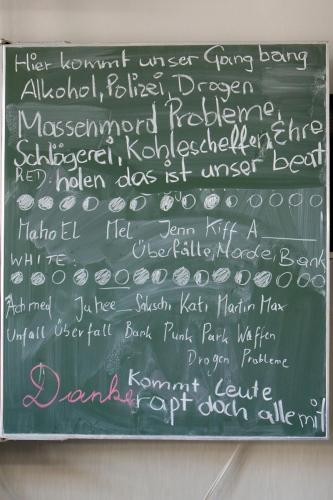 Hier kommt unser Gangbang
Alkohol, Polizei, Drogen
Massenmord Probleme,
Schlägerei, Kohlescheffen, Ehre
RED: holen das ist unser beat
Maho El Mel Jenn Kiff A
Überfälle, Morde, Bank
WHITE:
Achmed Juhee Sakschi Kati Martin Max
Unfall Überfall Bank Punk Park Waffen
Drogen Probleme
Danke Kommt Leute
rapt doch alle mit